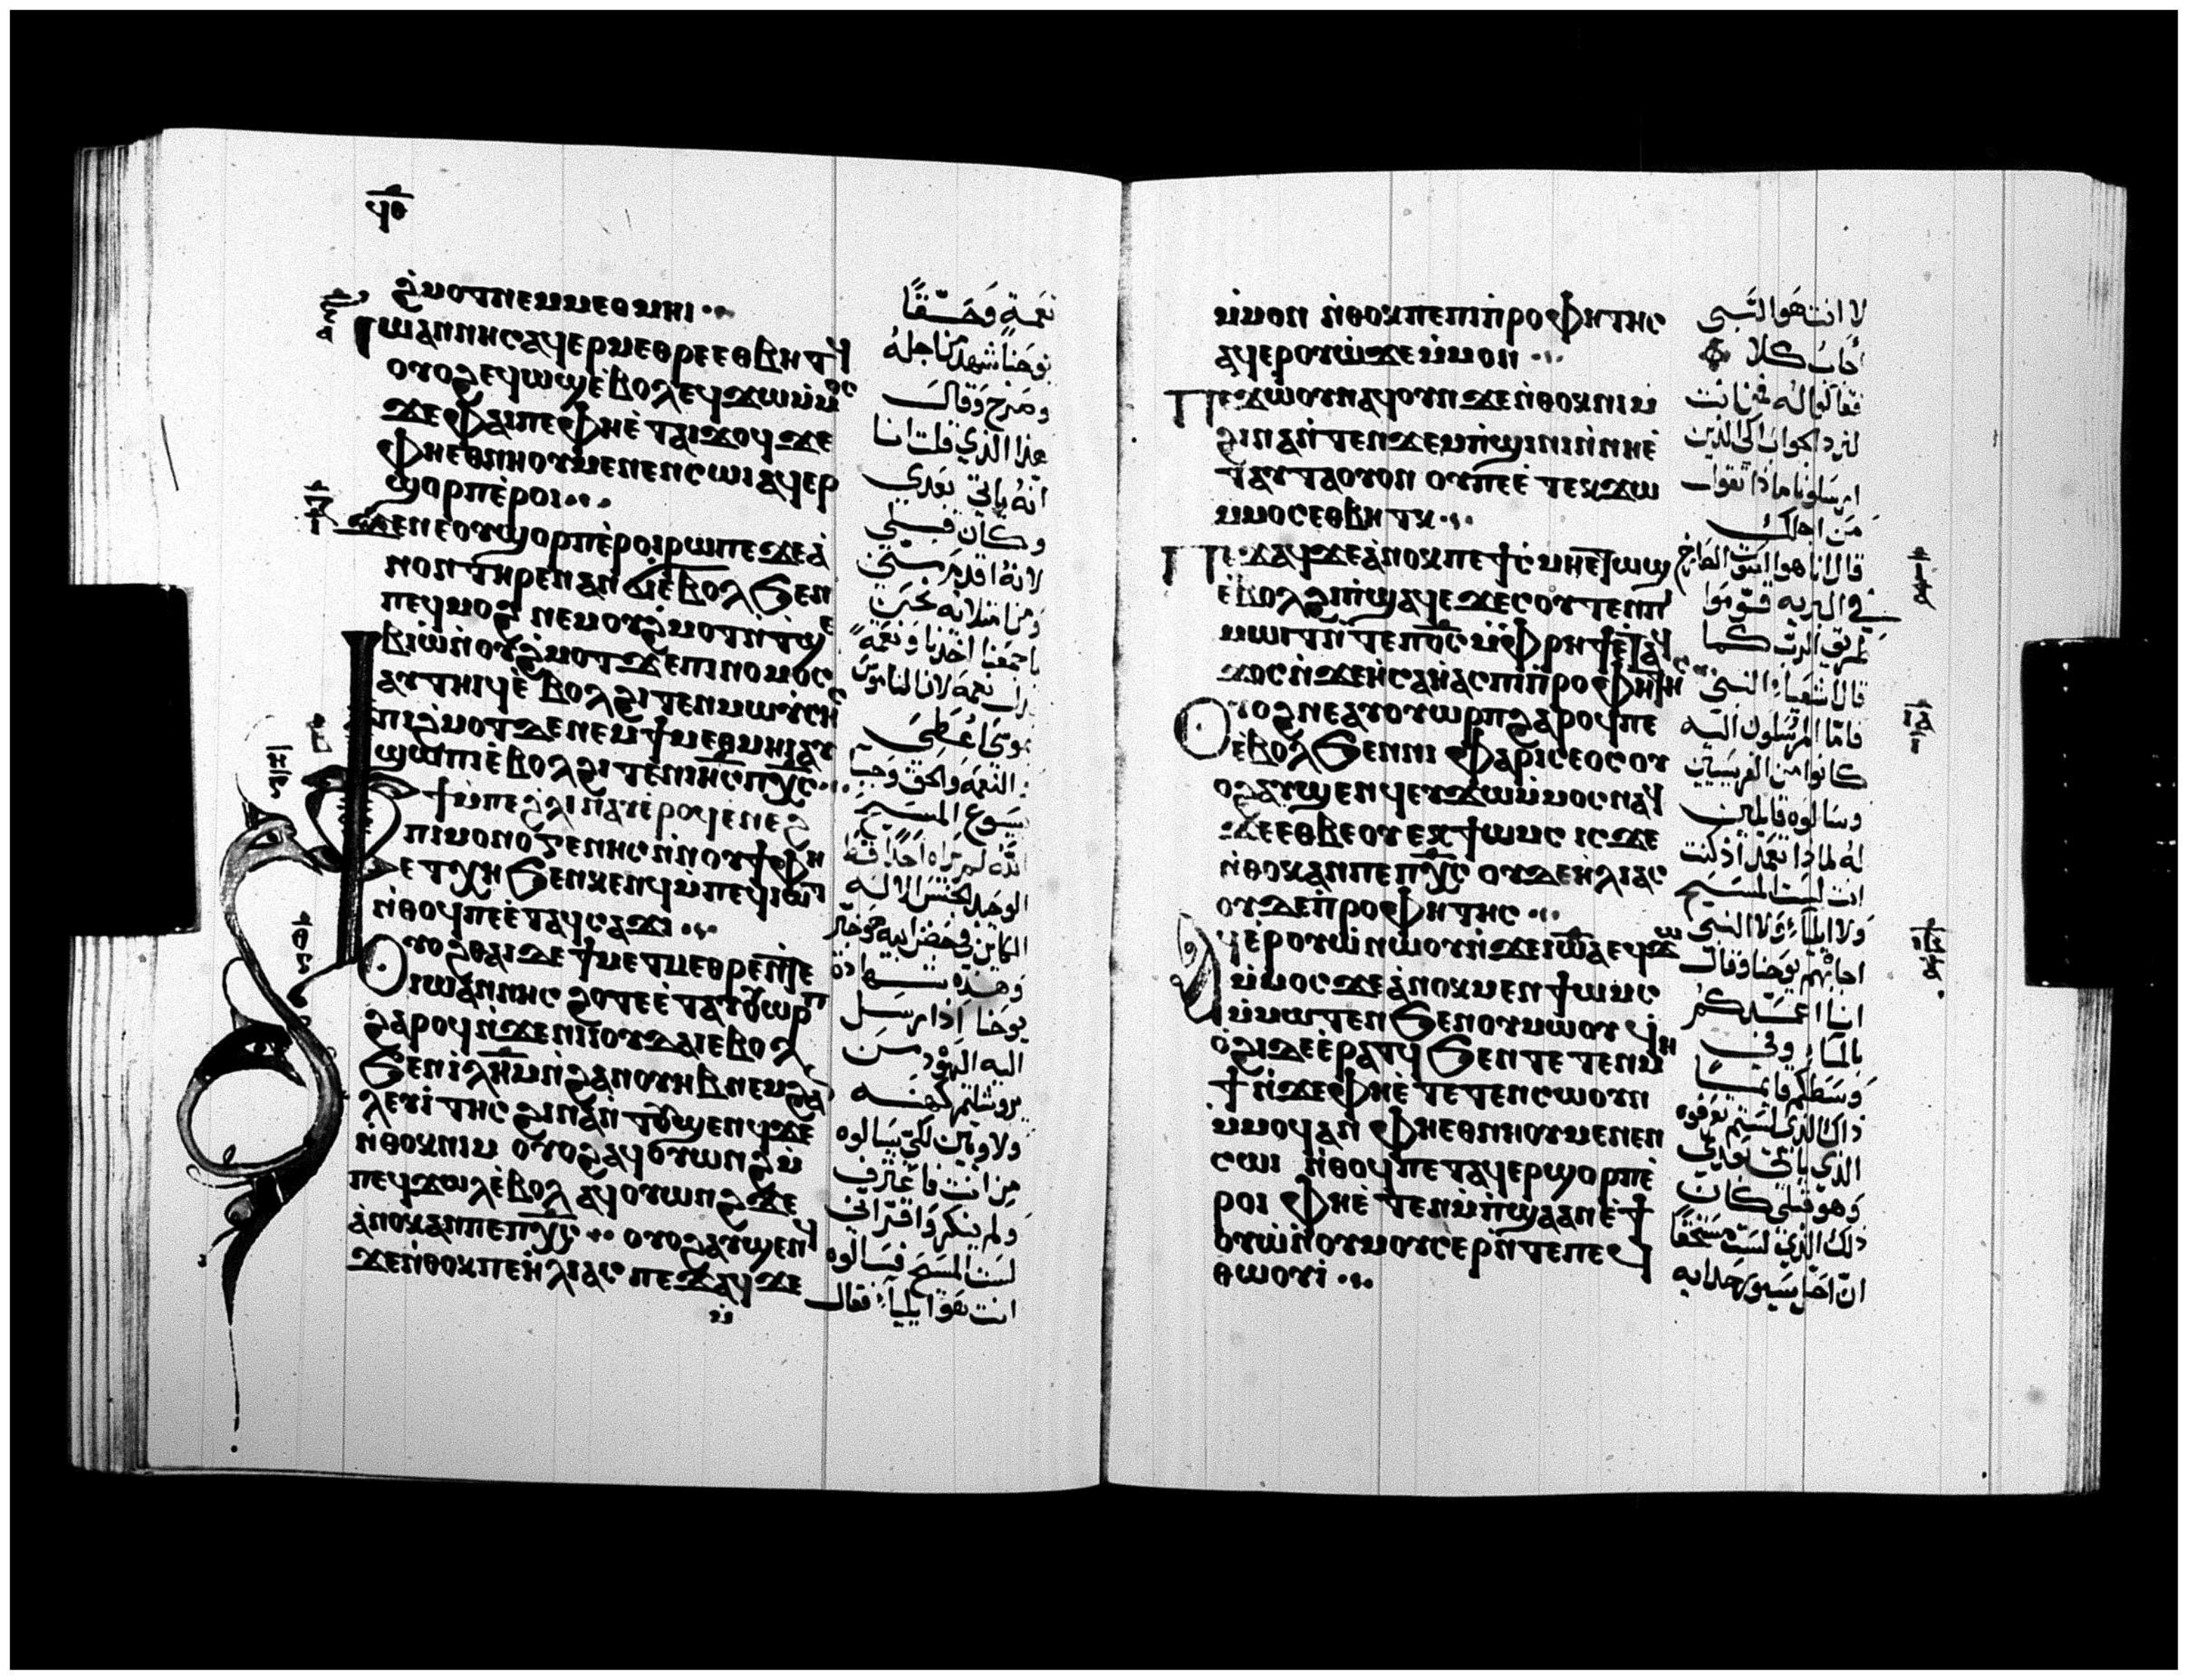 ϥⲑ
ϩⲙⲟⲧⲛⲉⲙⲙⲉⲑⲙⲏⲓ
ⲓⲱⲁⲛⲛⲏⲥⲁϥⲉⲣⲙⲉⲑⲣⲉⲉⲑⲃⲏⲧϥ
ⲟⲩⲟϩⲉϥⲱϣⲉⲃⲟⲗⲉϥϫⲱⲙⲙⲟⲥ
ϫⲉⲫⲁⲓⲡⲉⲫⲏⲉⲧⲁⲓϫⲟϥϫⲉ
ⲫⲏⲉⲑⲛⲏⲟⲩⲙⲉⲛⲉⲛⲥⲱⲓⲁϥⲉⲣ
ϣⲟⲣⲡⲉⲣⲟⲓ
ϫⲉⲛⲉⲟⲩϣⲟⲣⲡⲉⲣⲟⲓⲣⲱⲡⲉϫⲉⲁ
ⲛⲟⲛⲧⲏⲣⲉⲛⲁⲛϭⲓⲉⲃⲟⲗϧⲉⲛ
ⲡⲉϥⲙⲟϩ ⲛⲉⲙⲟⲩϩⲙⲟⲧⲛⲧϣⲉ
ⲃⲓⲱⲛⲟⲩϩⲙⲟⲧϫⲉⲡⲓⲛⲟⲙⲟⲥ
ⲁⲩⲧⲏⲓϥⲉⲃⲟⲗϩⲓⲧⲉⲛⲙⲱⲩⲥⲏⲥ
ⲡⲓϩⲙⲟⲧⲇⲉⲛⲉⲙϯⲙⲉⲑⲙⲏⲓⲁⲩ
ϣⲱⲡⲓⲉⲃⲟⲗϩⲓⲧⲉⲛⲓⲏⲥⲡⲭⲥ
ϯⲙⲡⲉϩⲗⲓⲛⲁⲩⲉⲣⲟϥⲉⲛⲉϩ
ⲡⲓⲙⲟⲛⲟⲅⲉⲛⲏⲥⲛⲛⲟⲩϯⲫⲏ
ⲉⲧⲭⲏϧⲉⲛⲕⲉⲛϥⲙⲡⲉϥⲓⲱⲧ
ⲛⲑⲟϥⲡⲉⲉⲧⲁϥⲥⲁϫⲓ
ⲟⲩⲟϩⲑⲁⲓⲧⲉϯⲙⲉⲧⲙⲉⲑⲣⲉⲛⲧⲉ
ⲓⲱⲁⲛⲛⲏⲥ ϩⲟⲧⲉⲉⲧⲁⲩⲟⲩⲱⲣⲡ
ϩⲁⲣⲟϥⲛϫⲉⲛⲓⲓⲟⲩⲇⲁⲓⲉⲃⲟⲗ
ϧⲉⲛⲓⲗⲏⲙⲛϩⲁⲛⲟⲩⲏⲃⲛⲉⲙϩⲁⲛ
ⲗⲉⲩⲓⲧⲏⲥ ϩⲓⲛⲁⲛⲧⲟⲩϣⲉⲛϥϫⲉ
ⲛⲑⲟⲕⲛⲓⲙ ⲟⲩⲟϩⲁϥⲟⲩⲱⲛϩⲙ
ⲡⲉϥϫⲱⲗⲉⲃⲟⲗ ⲁϥⲟⲩⲱⲛϩϫⲉ
ⲁⲛⲟⲕⲁⲛⲡⲉⲡⲭⲥ ⲟⲩⲟϩⲁⲩϣⲉⲛϥ
ϫⲉⲛⲑⲟⲕⲡⲉⲏⲗⲓⲁⲥ ⲡⲉϫⲁϥϫⲉ
نعمة وحقًا
يوحنا شهد من اجله
وصرخ وقال
هذا الذي قلت انا
انه ياتي بعدي
وكان قبلي
لانه اقدم مني
يسوع المسيح
الله لم يراه احدًا قط
وهذه شهادة
يوحنا اذ ارسل
اليه اليهود من
يروشليم كهنه
ولاويين لكي يسالوه
من انت فاعترف
ولم ينكر واقر اني
لست المسيح فسالوه
انت هو ايليا فقال
ⲙⲙⲟⲛ ⲛⲑⲟⲕⲡⲉⲡⲓⲡⲣⲟⲫⲏⲧⲏⲥ
ⲁϥⲉⲣⲟⲩⲱϫⲉⲙⲙⲟⲛ
ⲡⲉϫⲱⲟⲩⲛⲁϥⲟⲩⲛϫⲉⲛⲑⲟⲕⲛⲓⲙ
ϩⲓⲛⲁⲛⲧⲉⲛϫⲉⲙⲡϣⲓⲛⲓⲛⲛⲏⲉ
ⲧⲁⲩⲧⲁⲟⲩⲟⲛ ⲟⲩⲡⲉⲉⲧⲉⲕϫⲱ
ⲙⲙⲟⲥⲉⲑⲃⲏⲧⲕ
ⲡⲉϫⲁϥϫⲉⲁⲛⲟⲕⲡⲉϯⲥⲙⲏⲉⲧⲱϣ
ⲉⲃⲟⲗϩⲓⲡϣⲁϥⲉϫⲉⲥⲟⲩⲧⲉⲛⲡ
ⲙⲱⲓⲧⲛⲧⲉⲡⲟⲥⲙⲫⲣⲏϯⲉⲧⲁϥ
ϫⲟⲥⲛϫⲉⲏⲥⲁⲏⲁⲥⲡⲓⲡⲣⲟⲫⲏⲧⲏⲥ
ⲟⲩⲟϩⲛⲉⲁⲩⲟⲩⲱⲣⲡϩⲁⲣⲟϥⲡⲉ
ⲉⲃⲟⲗϧⲉⲛⲛⲓ ⲫⲁⲣⲓⲥⲉⲟⲥⲟⲩ
ⲟϩⲁⲩϣⲉⲛϥⲉⲩϫⲱⲙⲙⲟⲥⲛⲁϥ
ϫⲉⲉⲑⲃⲉⲟⲩ ⲉⲕϯⲱⲙⲥ ⲓⲥϫⲉ
ⲛⲑⲟⲕⲁⲛⲡⲉⲡⲭⲥ ⲟⲩⲇⲉⲏⲗⲓⲁⲥ
ⲟⲩⲇⲉⲡⲣⲟⲫⲏⲧⲏⲥ
ⲁϥⲉⲣⲟⲩⲱⲛⲱⲟⲩⲛϫⲉⲓⲱⲁⲉϥϫⲱ
ⲙⲙⲟⲥϫⲉⲁⲛⲟⲕⲙⲉⲛϯⲱⲙⲥ
ⲙⲙⲱⲧⲉⲛϧⲉⲛⲟⲩⲙⲱⲟⲩ ϥⲛ
ⲟϩⲓⲇⲉⲉⲣⲁⲧϥϧⲉⲛⲧⲉⲧⲉⲛⲙⲏ
ϯⲛϫⲉⲫⲏⲉⲧⲉⲧⲉⲛⲥⲱⲟⲩⲛ
ⲙⲙⲟϥⲁⲛ ⲫⲏⲉⲑⲛⲏⲟⲩⲙⲉⲛⲉⲛ
ⲥⲱⲓ ⲛⲑⲟϥⲡⲉⲧⲁϥⲉⲣϣⲟⲣⲡⲉ
ⲣⲟⲓ ⲫⲏⲉⲧⲉⲛⲙⲡϣⲁⲁⲛⲉϯ
ⲟⲩⲱⲛⲟⲩⲙⲟⲩⲥⲉⲣⲛⲧⲉⲡⲉϥ
ⲑⲱⲟⲩⲓ
لا انت هو النبي
اجاب كلا
فقالوا له فمن انت
لنرد الجواب الى الذين
ارسلونا ماذا تقول
من اجلك
قال انا هو الصوت الصارخ
في البريه قوموا
طريق الرب كما
قال اشعياء النبي
فاما المرسلون اليه
كانوا من الفريسيين
وسالوه قايلين
له لماذا تعمد اذ كنت
انت لست المسيح
ولا ايليا ولا النبي
اجابهم يوحنا وقال
انا اعمدكم
بالماء وفي
وسطكم قايمًا
ذاك الذي لستم تعرفوه
الذي ياتي بعدي
وهو قبلي كان
ذلك الذي لست مستحقًا
ان احل سيور حذايه